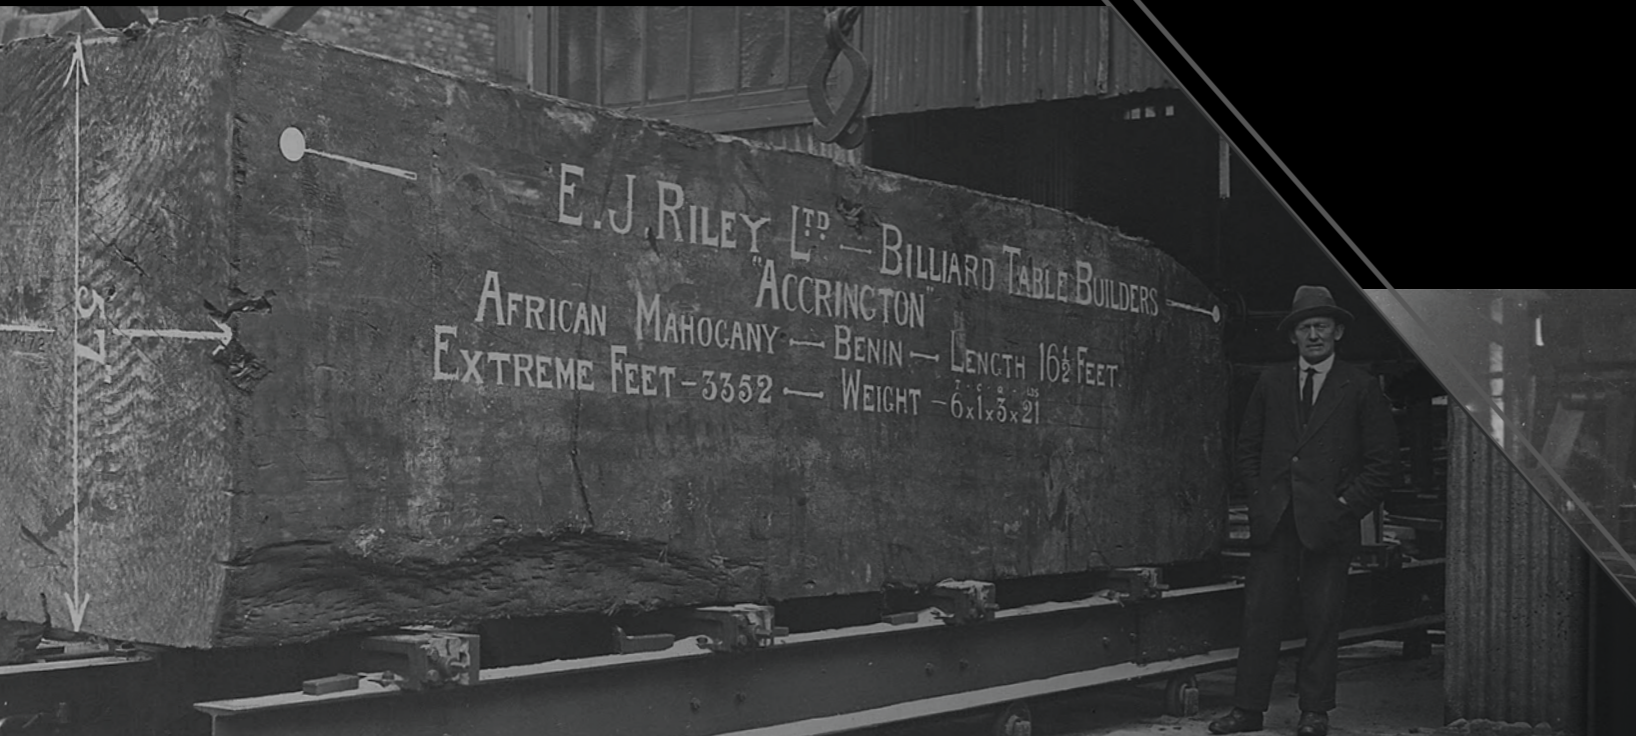 E.J. RILEY LTD — BILLIARD TABLE BUILDERS
"ACCRINGTON"
AFRICAN MAHOGANY — BENIN — LENGTH 16½ FEET.
EXTREME FEET - 3352 — WEIGHT - 6x1x3x21
57